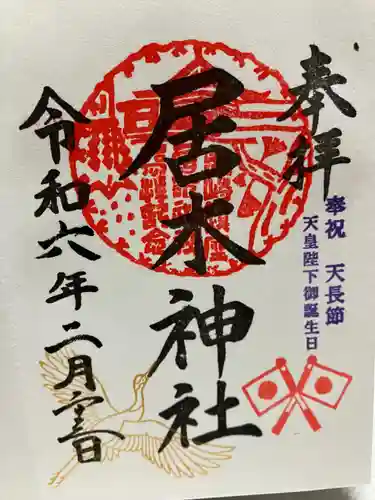 奉拝
奉祝 天長節
天皇陛下御誕生日
居木神社
令和六年二月廿三日